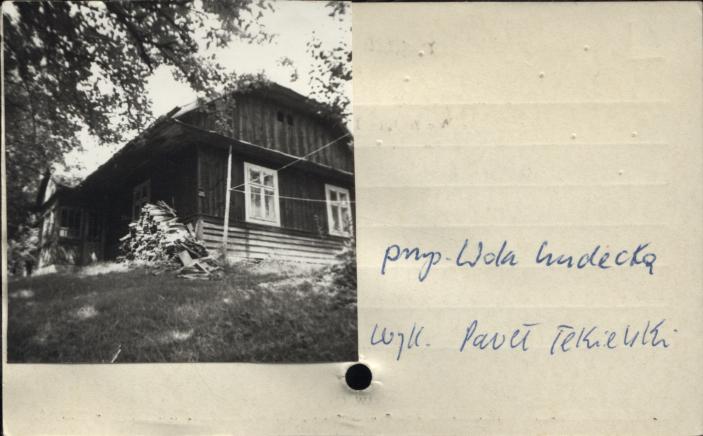 przyp. Wda Ludecką
wyk. Paweł Tekielski